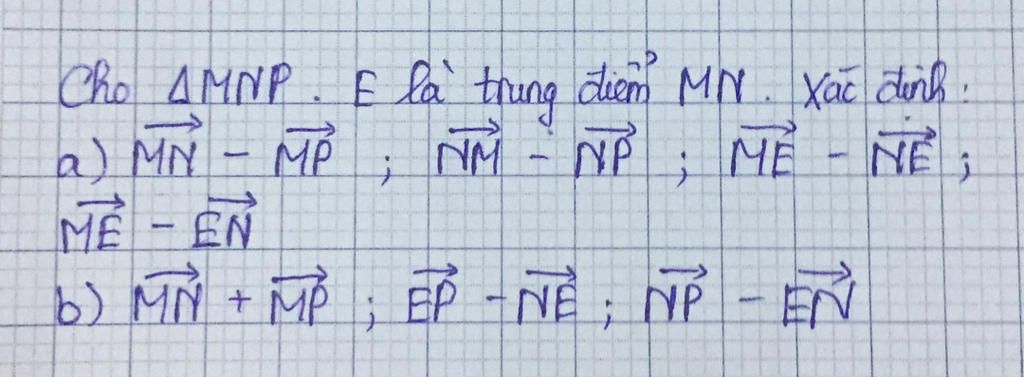 Cho ΔMNP. E là trung điểm MN. Xác định:
a) $\overrightarrow{MN}$ - $\overrightarrow{MP}$ ; $\overrightarrow{NM}$ - $\overrightarrow{NP}$ ; $\overrightarrow{ME}$ - $\overrightarrow{NE}$ ;
$\overrightarrow{ME}$ - $\overrightarrow{EN}$
b) $\overrightarrow{MN}$ + $\overrightarrow{MP}$ ; $\overrightarrow{EP}$ - $\overrightarrow{NE}$ ; $\overrightarrow{NP}$ - $\overrightarrow{EN}$